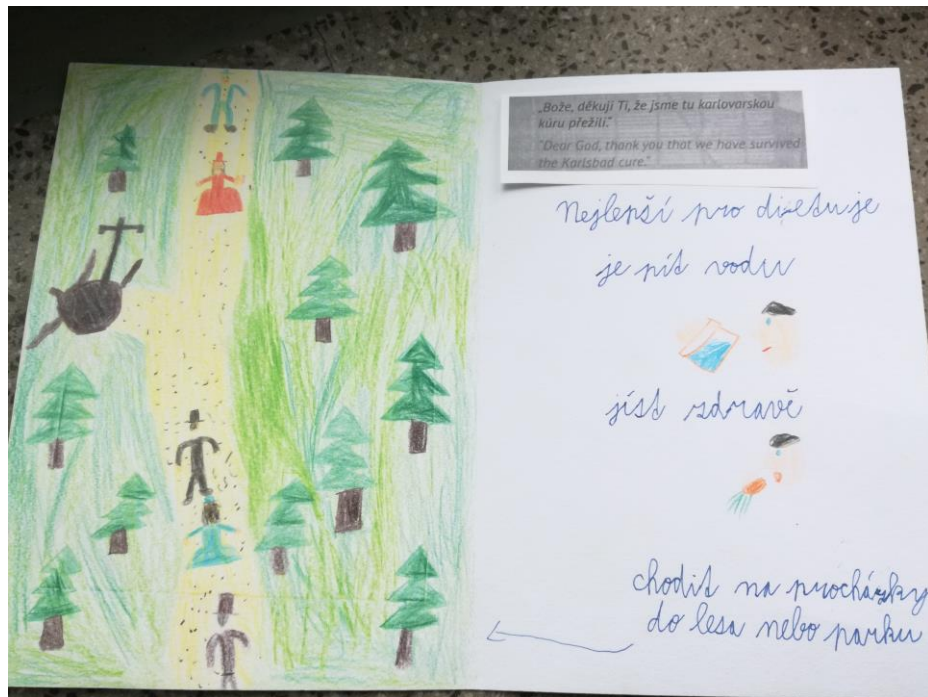 „Bože, děkuji Ti, že jsme tu karlovarskou
kúru přežili.“
"Dear God, thank you that we have survived
the Karlsbad cure."
Nejlepší pro dietu je
je pít vodu
jíst zdravě
chodit na procházky
do lesa nebo parku